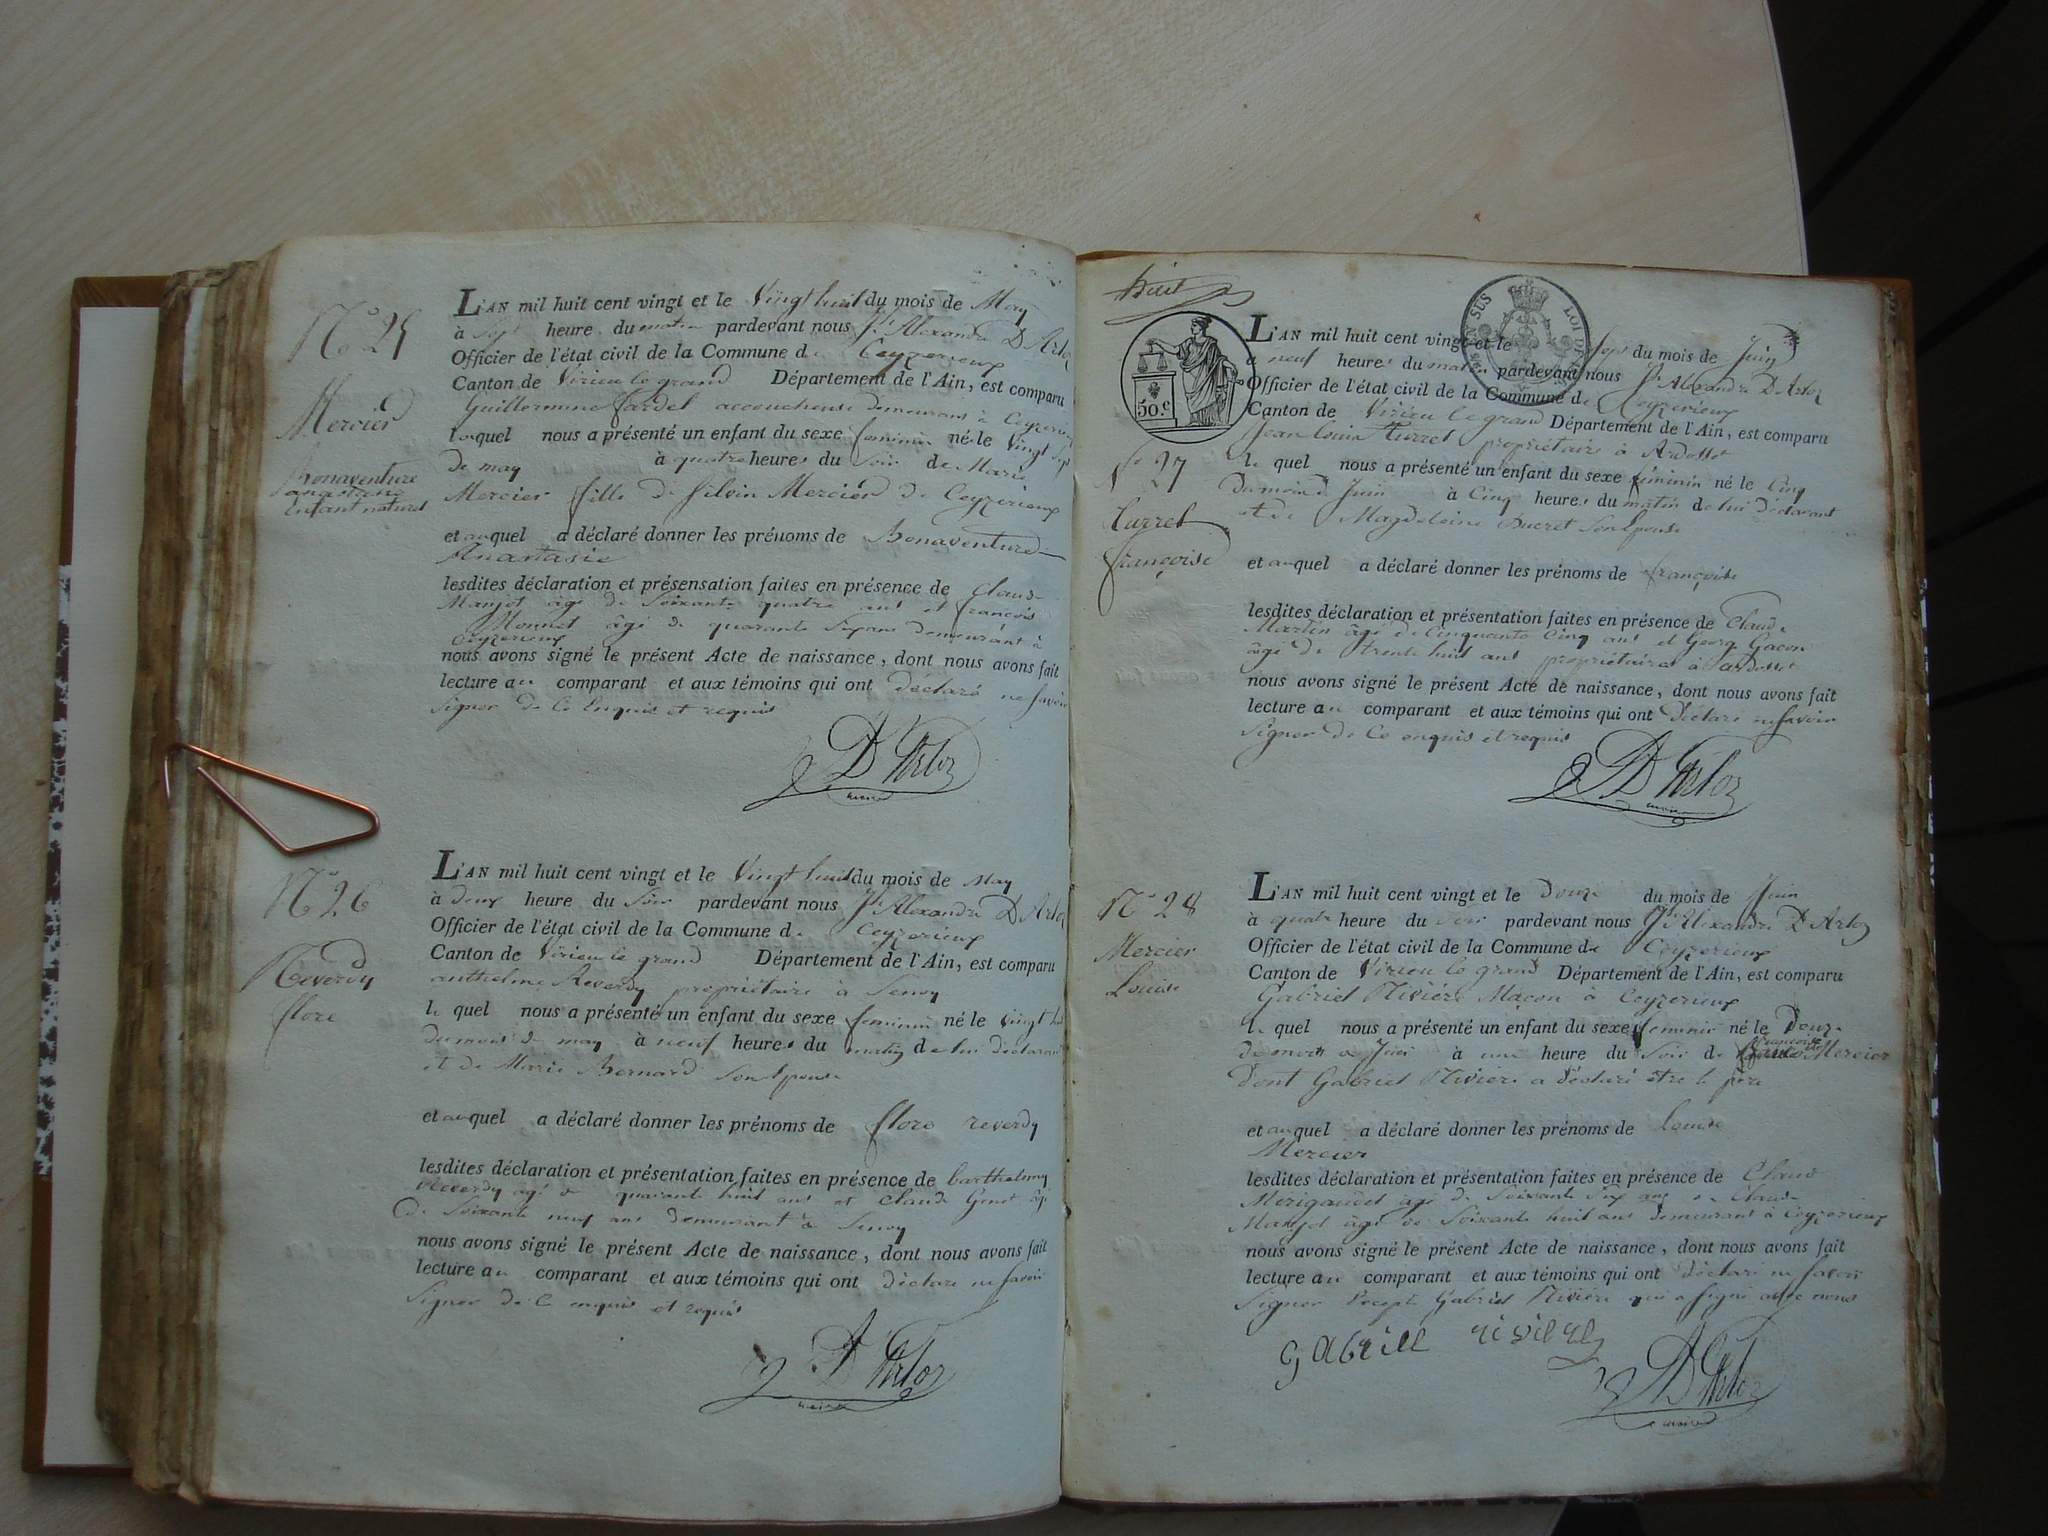 N° 25
Mercier
Bonaventure
anastasie
Enfant naturel
L'AN mil huit cent vingt et le Vingt huit du mois de May
à Sept heure du matin pardevant nous Jh Alexandre D'Arloz
Officier de l'état civil de la Commune de Ceyzerieux
Canton de Virieu le grand Département de l'Ain, est comparu
Guillermine Cardel accoucheuse demeurant à Ceyzerieux
laquel nous a présenté un enfant du sexe feminin né le Vingt Sept
de may à quatre heures du Soir de Marie
Mercier fille de Silvin Mercier de Ceyzerieux
et auquel a déclaré donner les prénoms de Bonaventure
Anastasie
lesdites déclaration et présensation faites en présence de Claude
Manjot âgé de Soixante quatre ans et francois
Monnet âgé de quarante Six ans demeurant à
Ceyzerieux
nous avons signé le présent Acte de naissance, dont nous avons fait
lecture au comparant et aux témoins qui ont déclaré ne Savoir
Signer de Ce Enquis et requis
D'Arloz
maire
N° 26
Reverdy
flore
L'AN mil huit cent vingt et le Vingt huit du mois de May
à deux heure du Soir pardevant nous Jh Alexandre D'Arloz
Officier de l'état civil de la Commune de Ceyzerieux
Canton de Virieu le grand Département de l'Ain, est comparu
anthelme Reverdy propriétaire à Senoy
le quel nous a présenté un enfant du sexe feminin né le Vingt huit
du mois de may à neuf heures du matin de lui déclarant
et de Marie Bernard Son Epouse
et auquel a déclaré donner les prénoms de flore reverdy
lesdites déclaration et présentation faites en présence de barthelemy
Reverdy âgé de quarante huit ans et Claude Genet âgé
de Soixante neuf ans demeurant à Senoy
nous avons signé le présent Acte de naissance, dont nous avons fait
lecture au comparant et aux témoins qui ont déclaré ne Savoir
Signer de Ce enquis et requis
D'Arloz
maire
huit
50.c
SES LOI DE
N° 27
Turrel
françoise
L'AN mil huit cent vingt et le Sept du mois de Juin
à neuf heures du matin pardevant nous Jh Alexandre D'Arloz
Officier de l'état civil de la Commune de Ceyzerieux
Canton de Virieu le grand Département de l'Ain, est comparu
Jean louis Turrel propriétaire à Ardosset
le quel nous a présenté un enfant du sexe féminin né le Cinq
du mois de Juin à Cinq heures du matin de lui déclarant
et de Magdeleine Ducret Son Epouse
et auquel a déclaré donner les prénoms de françoise
lesdites déclaration et présentation faites en présence de Claude
Martin âgé de Cinquante Cinq ans et Georg Gacon
âgé de trente huit ans propriétaires à ardosset
nous avons signé le présent Acte de naissance, dont nous avons fait
lecture au comparant et aux témoins qui ont déclaré ne Savoir
Signer de Ce enquis et requis
D'Arloz
maire
N° 28
Mercier
Louise
L'AN mil huit cent vingt et le Douze du mois de Juin
à quatre heure du Soir pardevant nous Jh Alexandre D'Arloz
Officier de l'état civil de la Commune de Ceyzerieux
Canton de Virieu le grand Département de l'Ain, est comparu
Gabriel Riviére Maçon à Ceyzerieux
le quel nous a présenté un enfant du sexe feminin né le Douze
de mois de Juin à une heure du Soir de françoise Mercier
Dont Gabriel Riviere a déclaré être le père
et auquel a déclaré donner les prénoms de Louise
Mercier
lesdites déclaration et présentation faites en présence de Claude
Merigaudet âgé de Soixante Six ans et Claude
Manjot âgé de Soixante huit ans demeurant à Ceyzerieux
nous avons signé le présent Acte de naissance, dont nous avons fait
lecture au comparant et aux témoins qui ont déclaré ne Savoir
Signer Excepté Gabriel Riviére qui a signé avec nous
gabriel
D'Arloz
maire